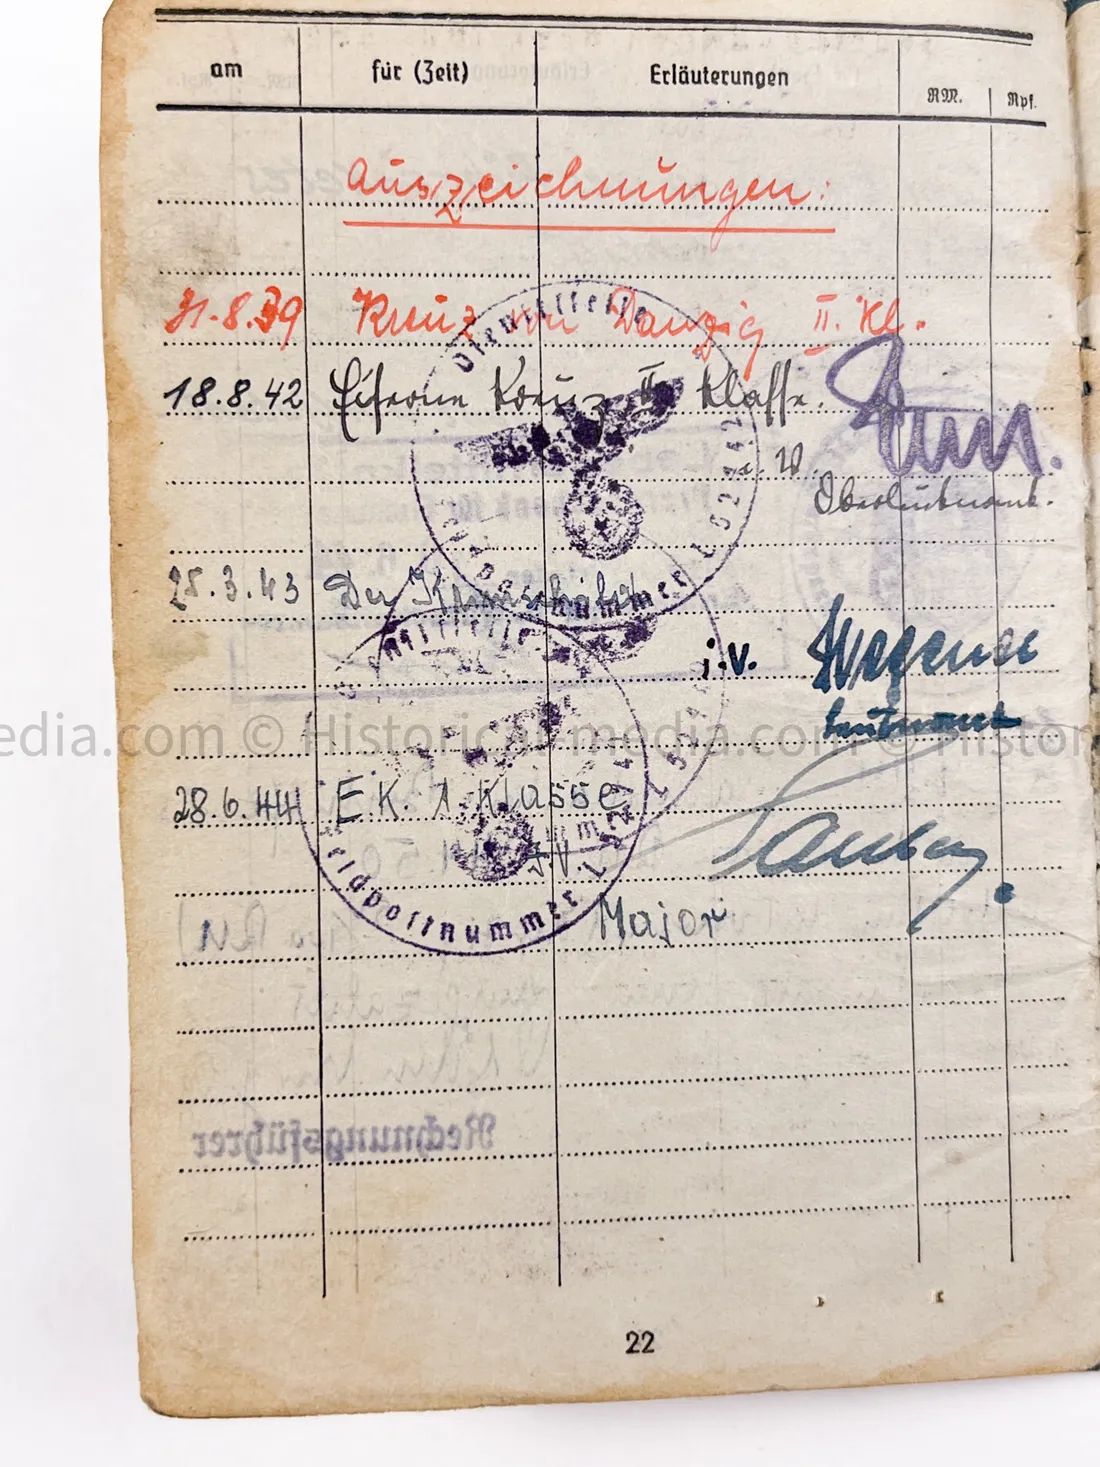 am für (Zeit) Erläuterungen RM. Rpf.
Auszeichnungen:
31.8.39 Kreuz von Danzig II. Kl.
18.8.42 Eiserne Kreuz II Klasse.
Oberleutnant.
25.3.43 Der Krimschild
i.V. Wagener
Leutnant
28.6.44 EK. 1 Klasse
I.V.
Major
Dienststelle
Feldpostnummer L
Dienststelle
Feldpostnummer L
Rechnungsführer
22
edia.com © Historical-media.com © Histor